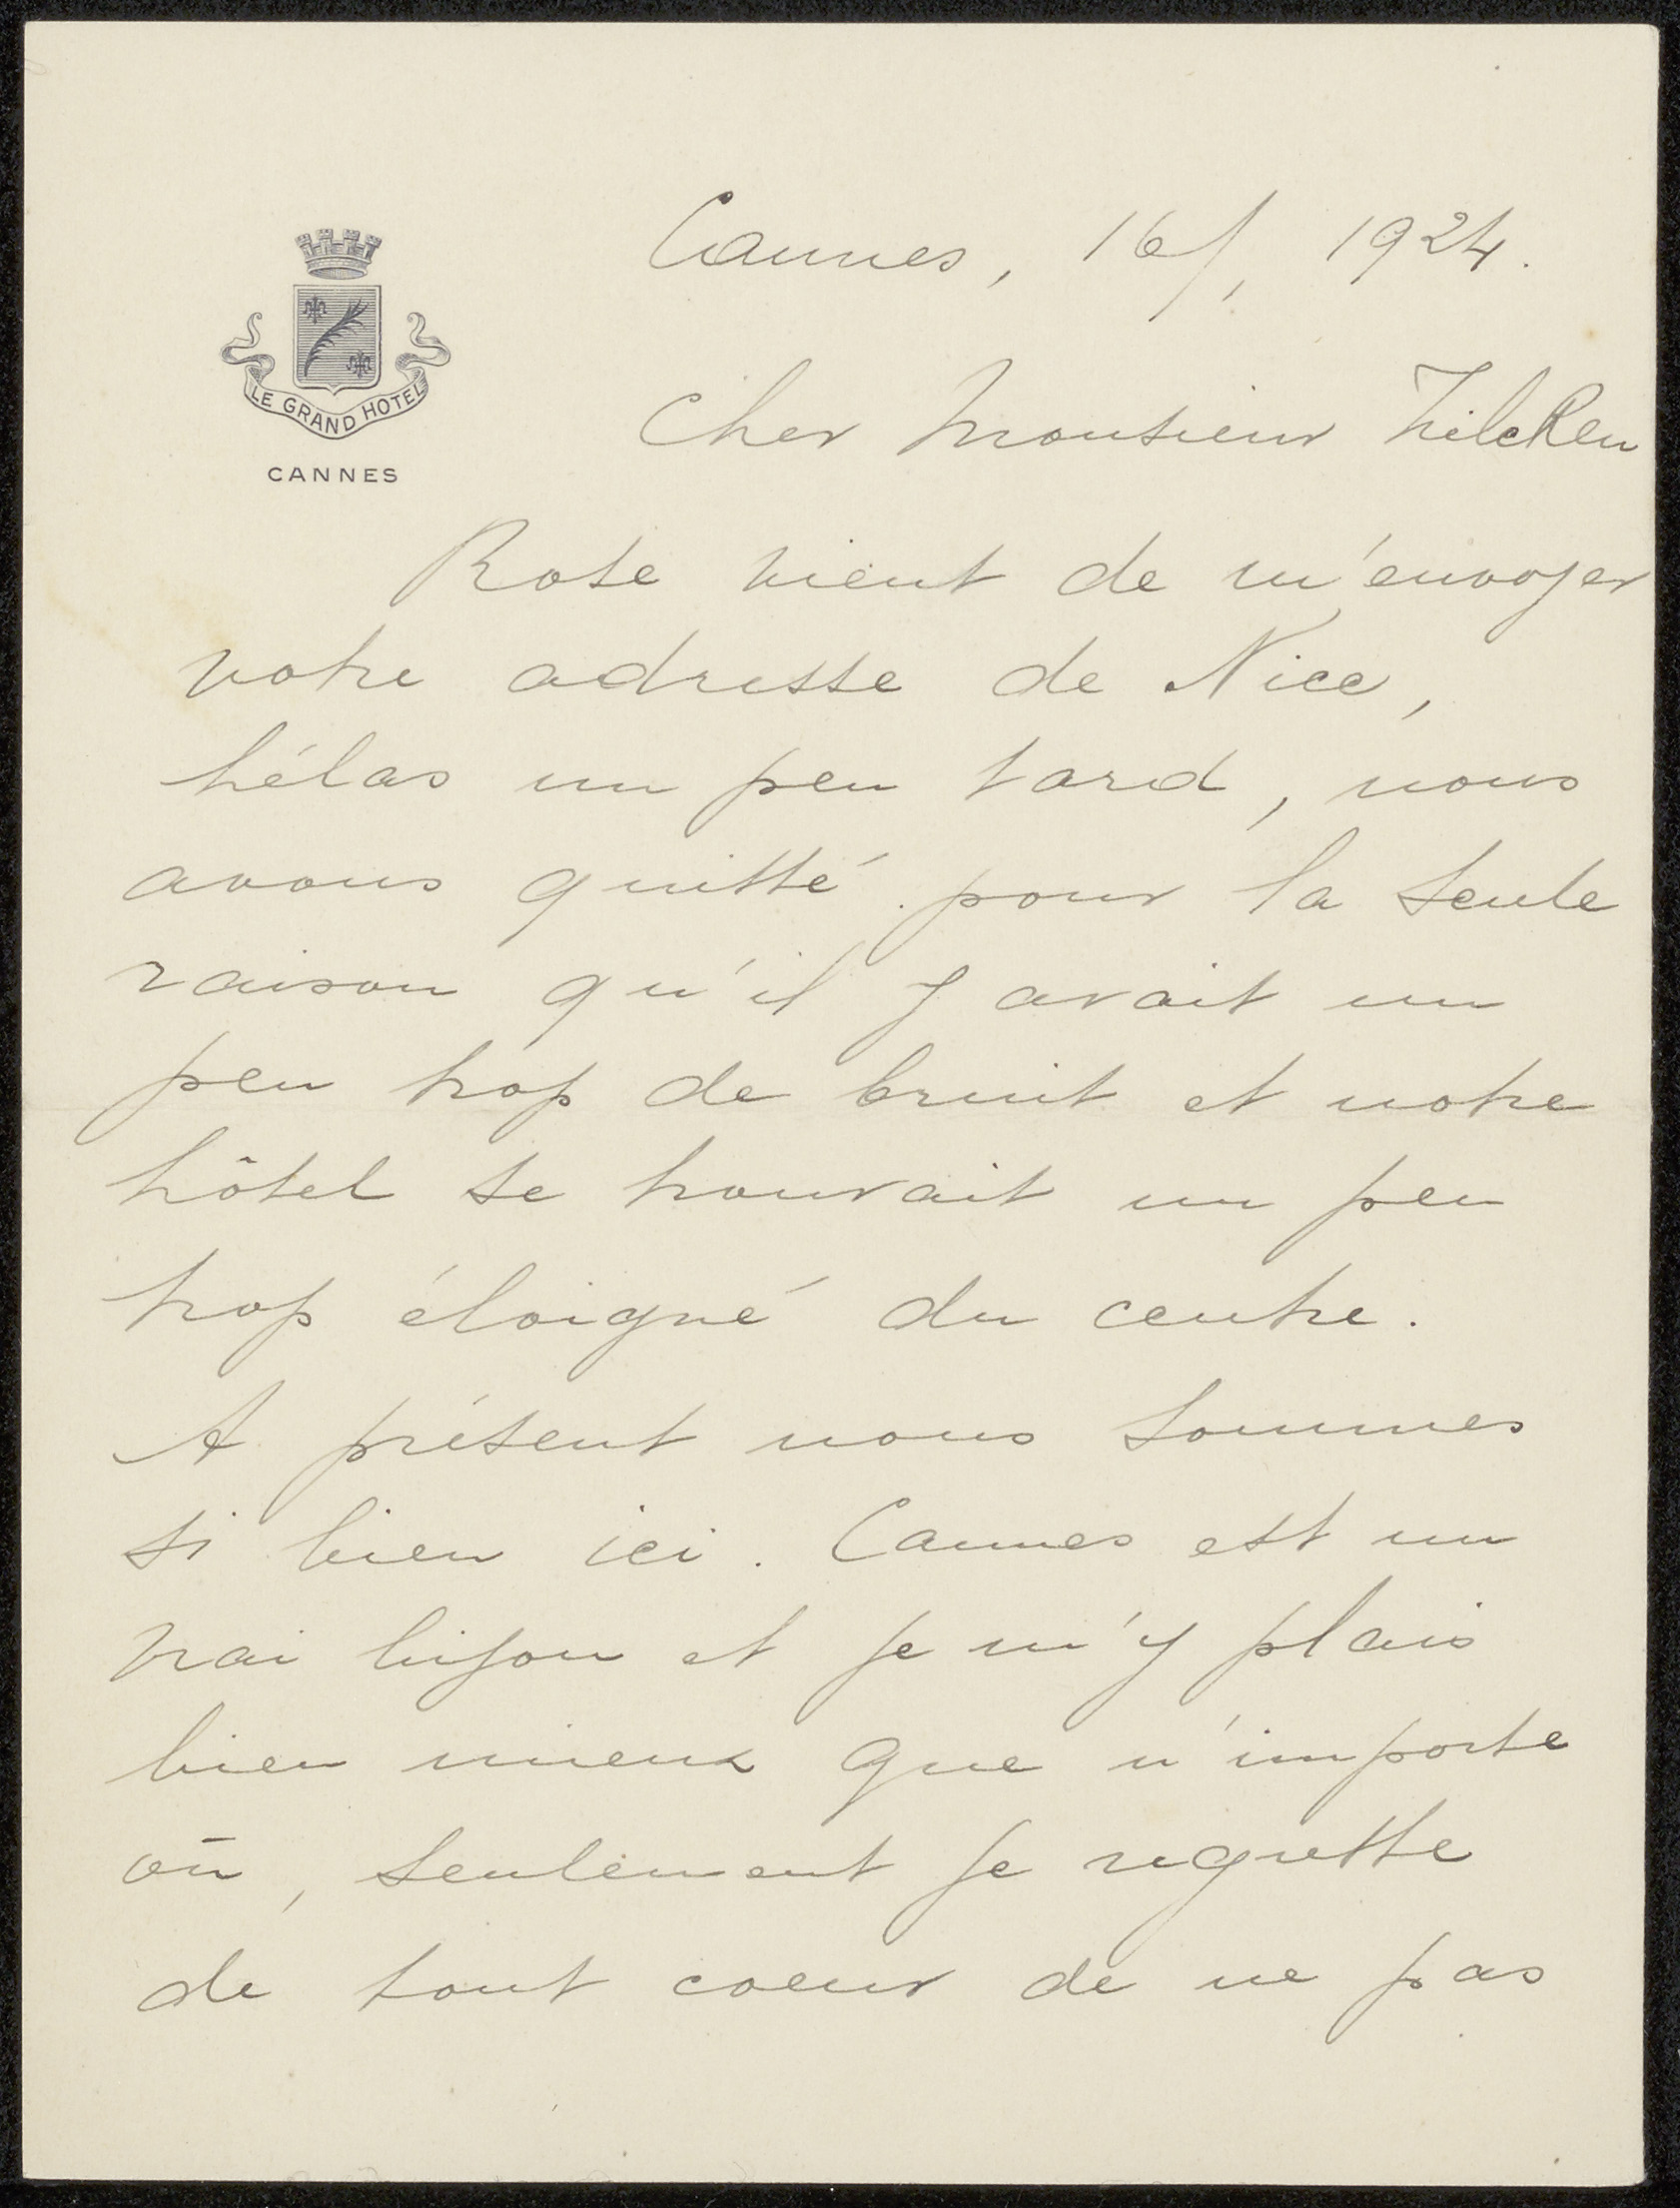 Cannes, 16/1 1924.
LE GRAND HOTEL
CANNES
Cher Monsieur Zilcken
Rose vient de m'envoyer
votre adresse de Nice,
hélas un peu tard, nous
avons quitté pour la seule
raison qu'il y avait un
peu trop de bruit et notre
hôtel se trouvait un peu
trop éloigné du centre.
A présent nous sommes
si bien ici. Cannes est un
vrai bijou et je m'y plais
bien mieux que n'importe
où, seulement je regrette
de tout coeur de ne pas